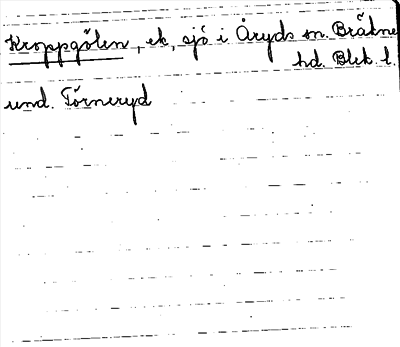 Kroppgölen, ek, sjö i Åryds sn. Bräkne
hd. Blek. l.
und. Törneryd